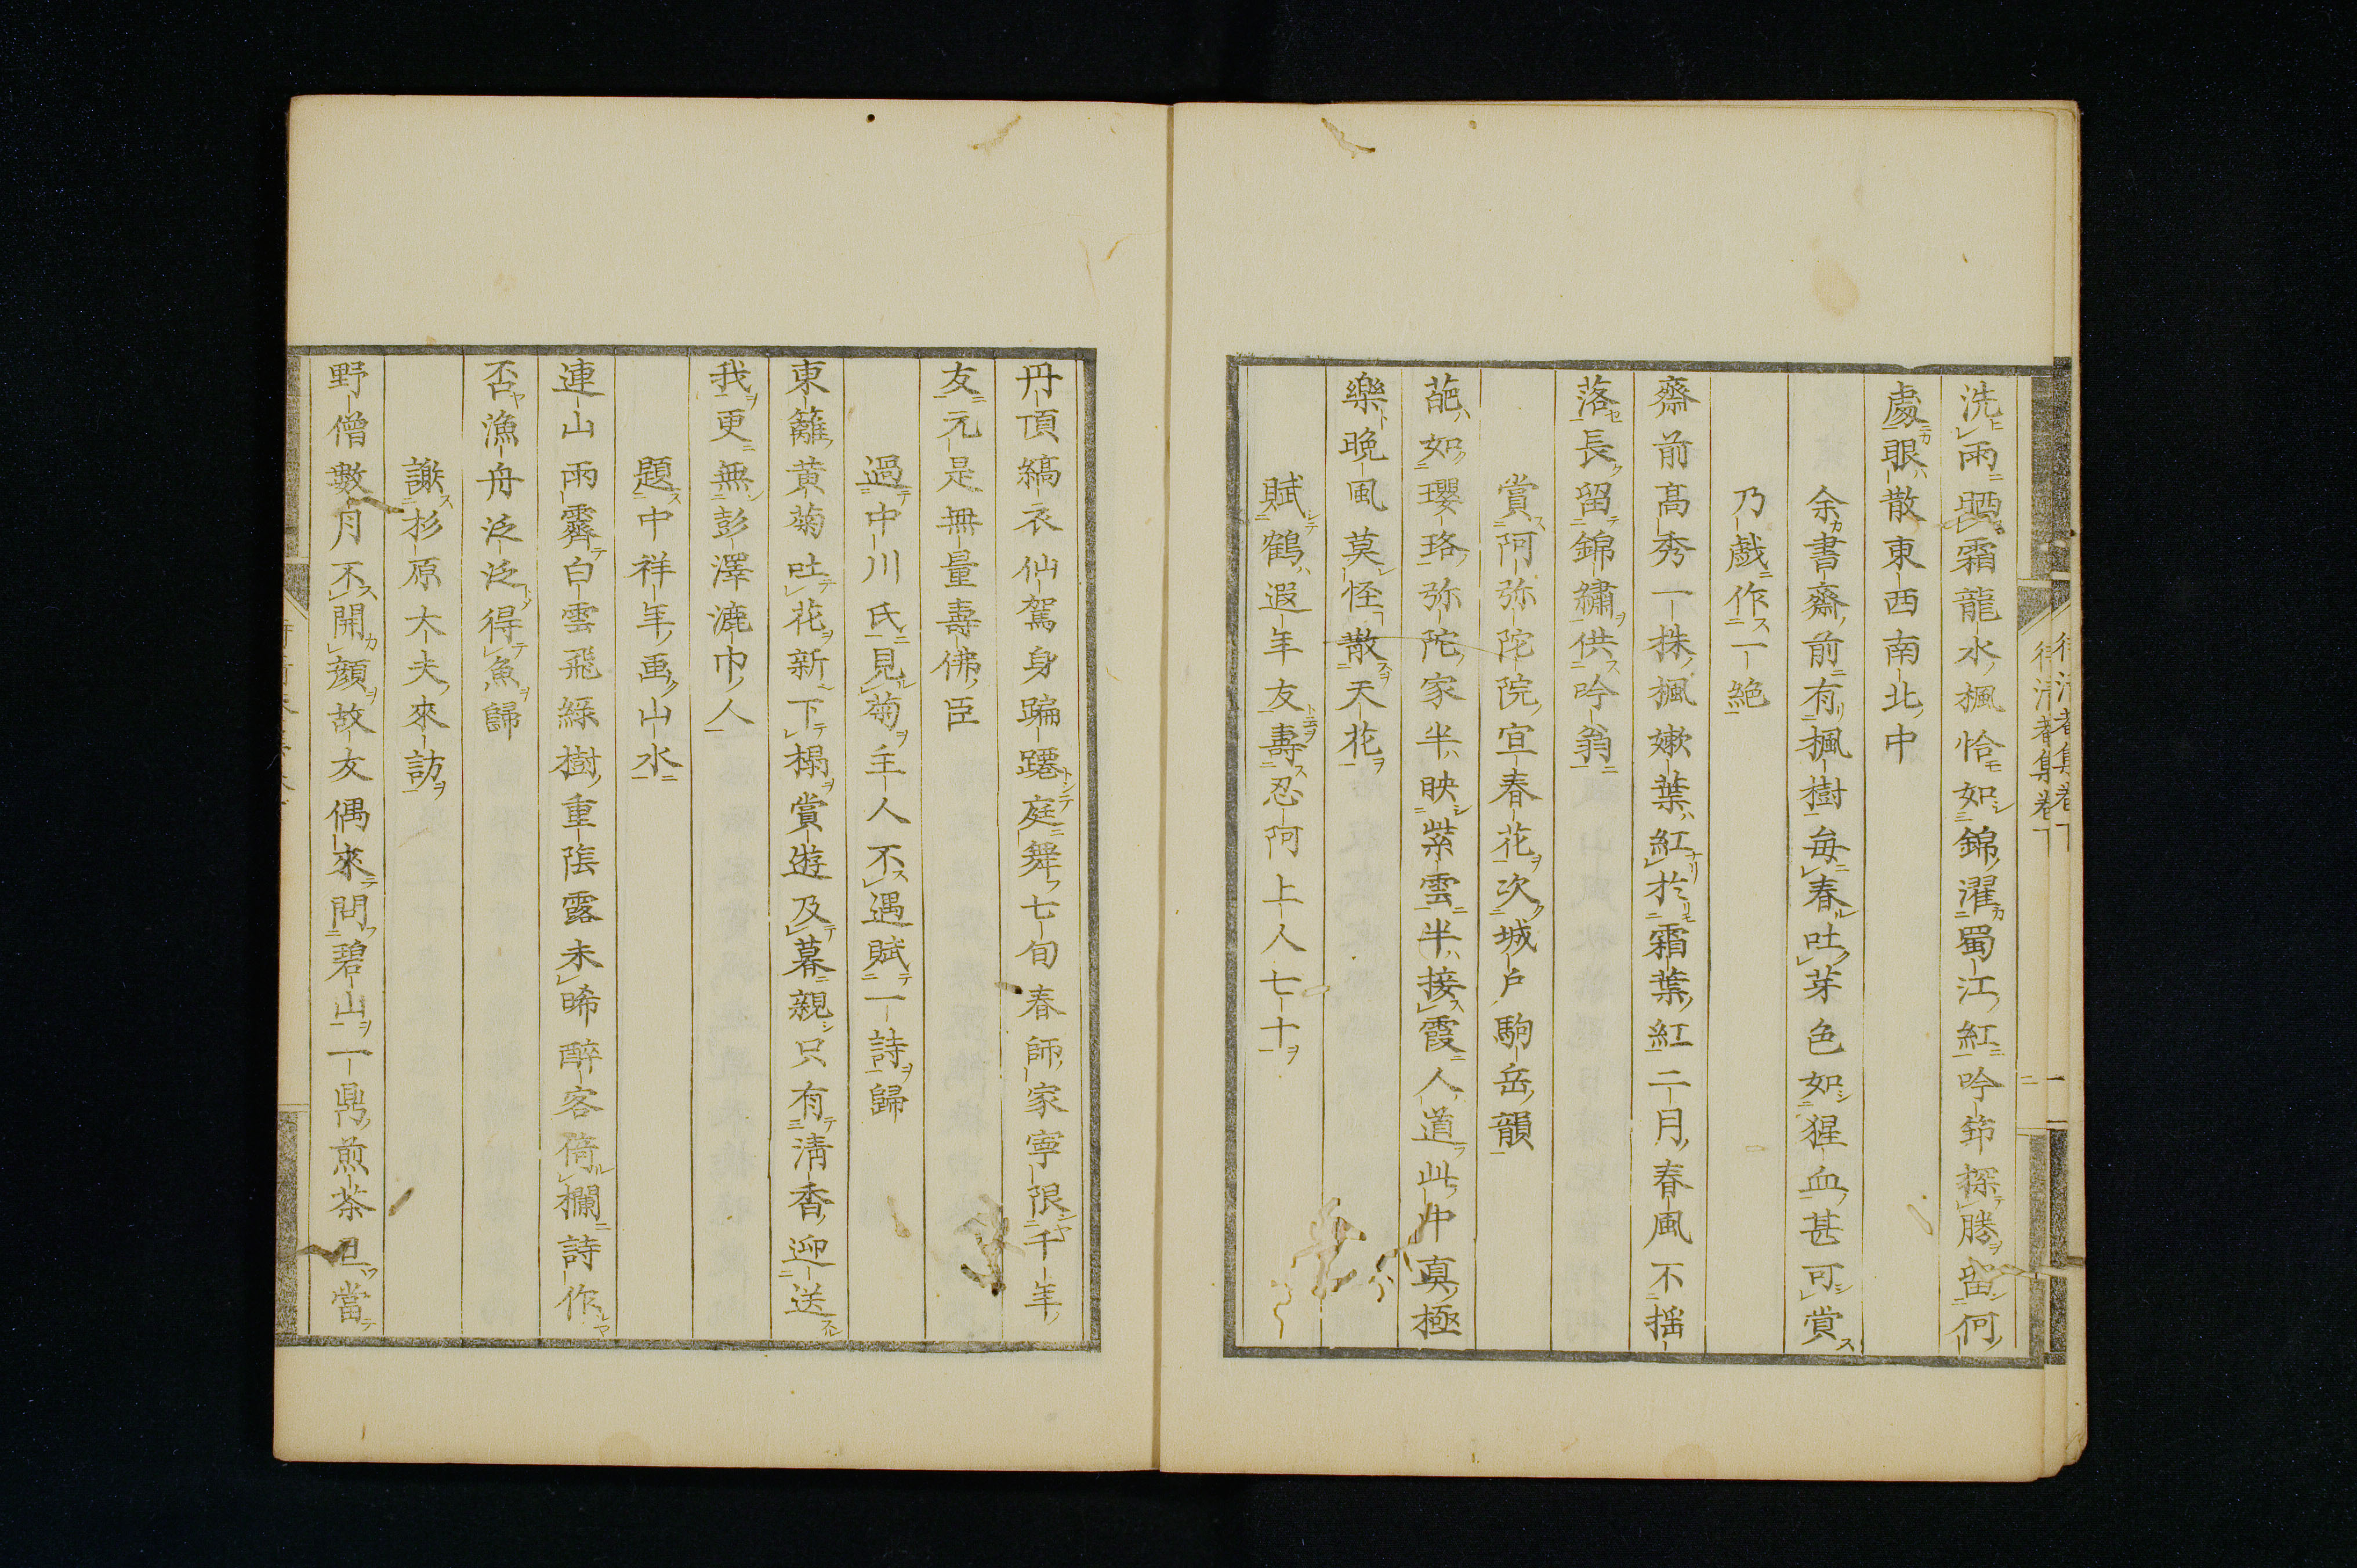 洗雨晒霜龍水楓恰如錦濯蜀江紅吟筇探勝留何
處眼散東西南北中
余書齋前有楓樹每春吐芽色如猩血甚可賞
乃戲作一絶
齋前高秀一株楓嫩葉紅於霜葉紅二月春風不揺
落長留錦繡供吟翁
賞阿弥陀院宜春花次城戶駒岳韻
葩如瓔珞弥陀家半映紫雲半接霞人道此中真極
樂晚風莫怪散天花
賦鶴遐年友壽忍阿上人七十
丹頂縞衣仙駕身蹁躚庭舞七旬春師家寧限千年
友元是無量壽佛臣
過中川氏見菊主人不遇賦一詩歸
東籬黄菊吐花新下榻賞遊及暮親只有清香迎送
我更無彭澤漉巾人
題中祥年画山水
連山雨霽白雲飛綠樹重陰露未晞醉客倚欄詩作
否漁舟泛泛得魚歸
謝杉原大夫來訪
野僧數月不開顔故友偶來問碧山一鼎煎茶且當